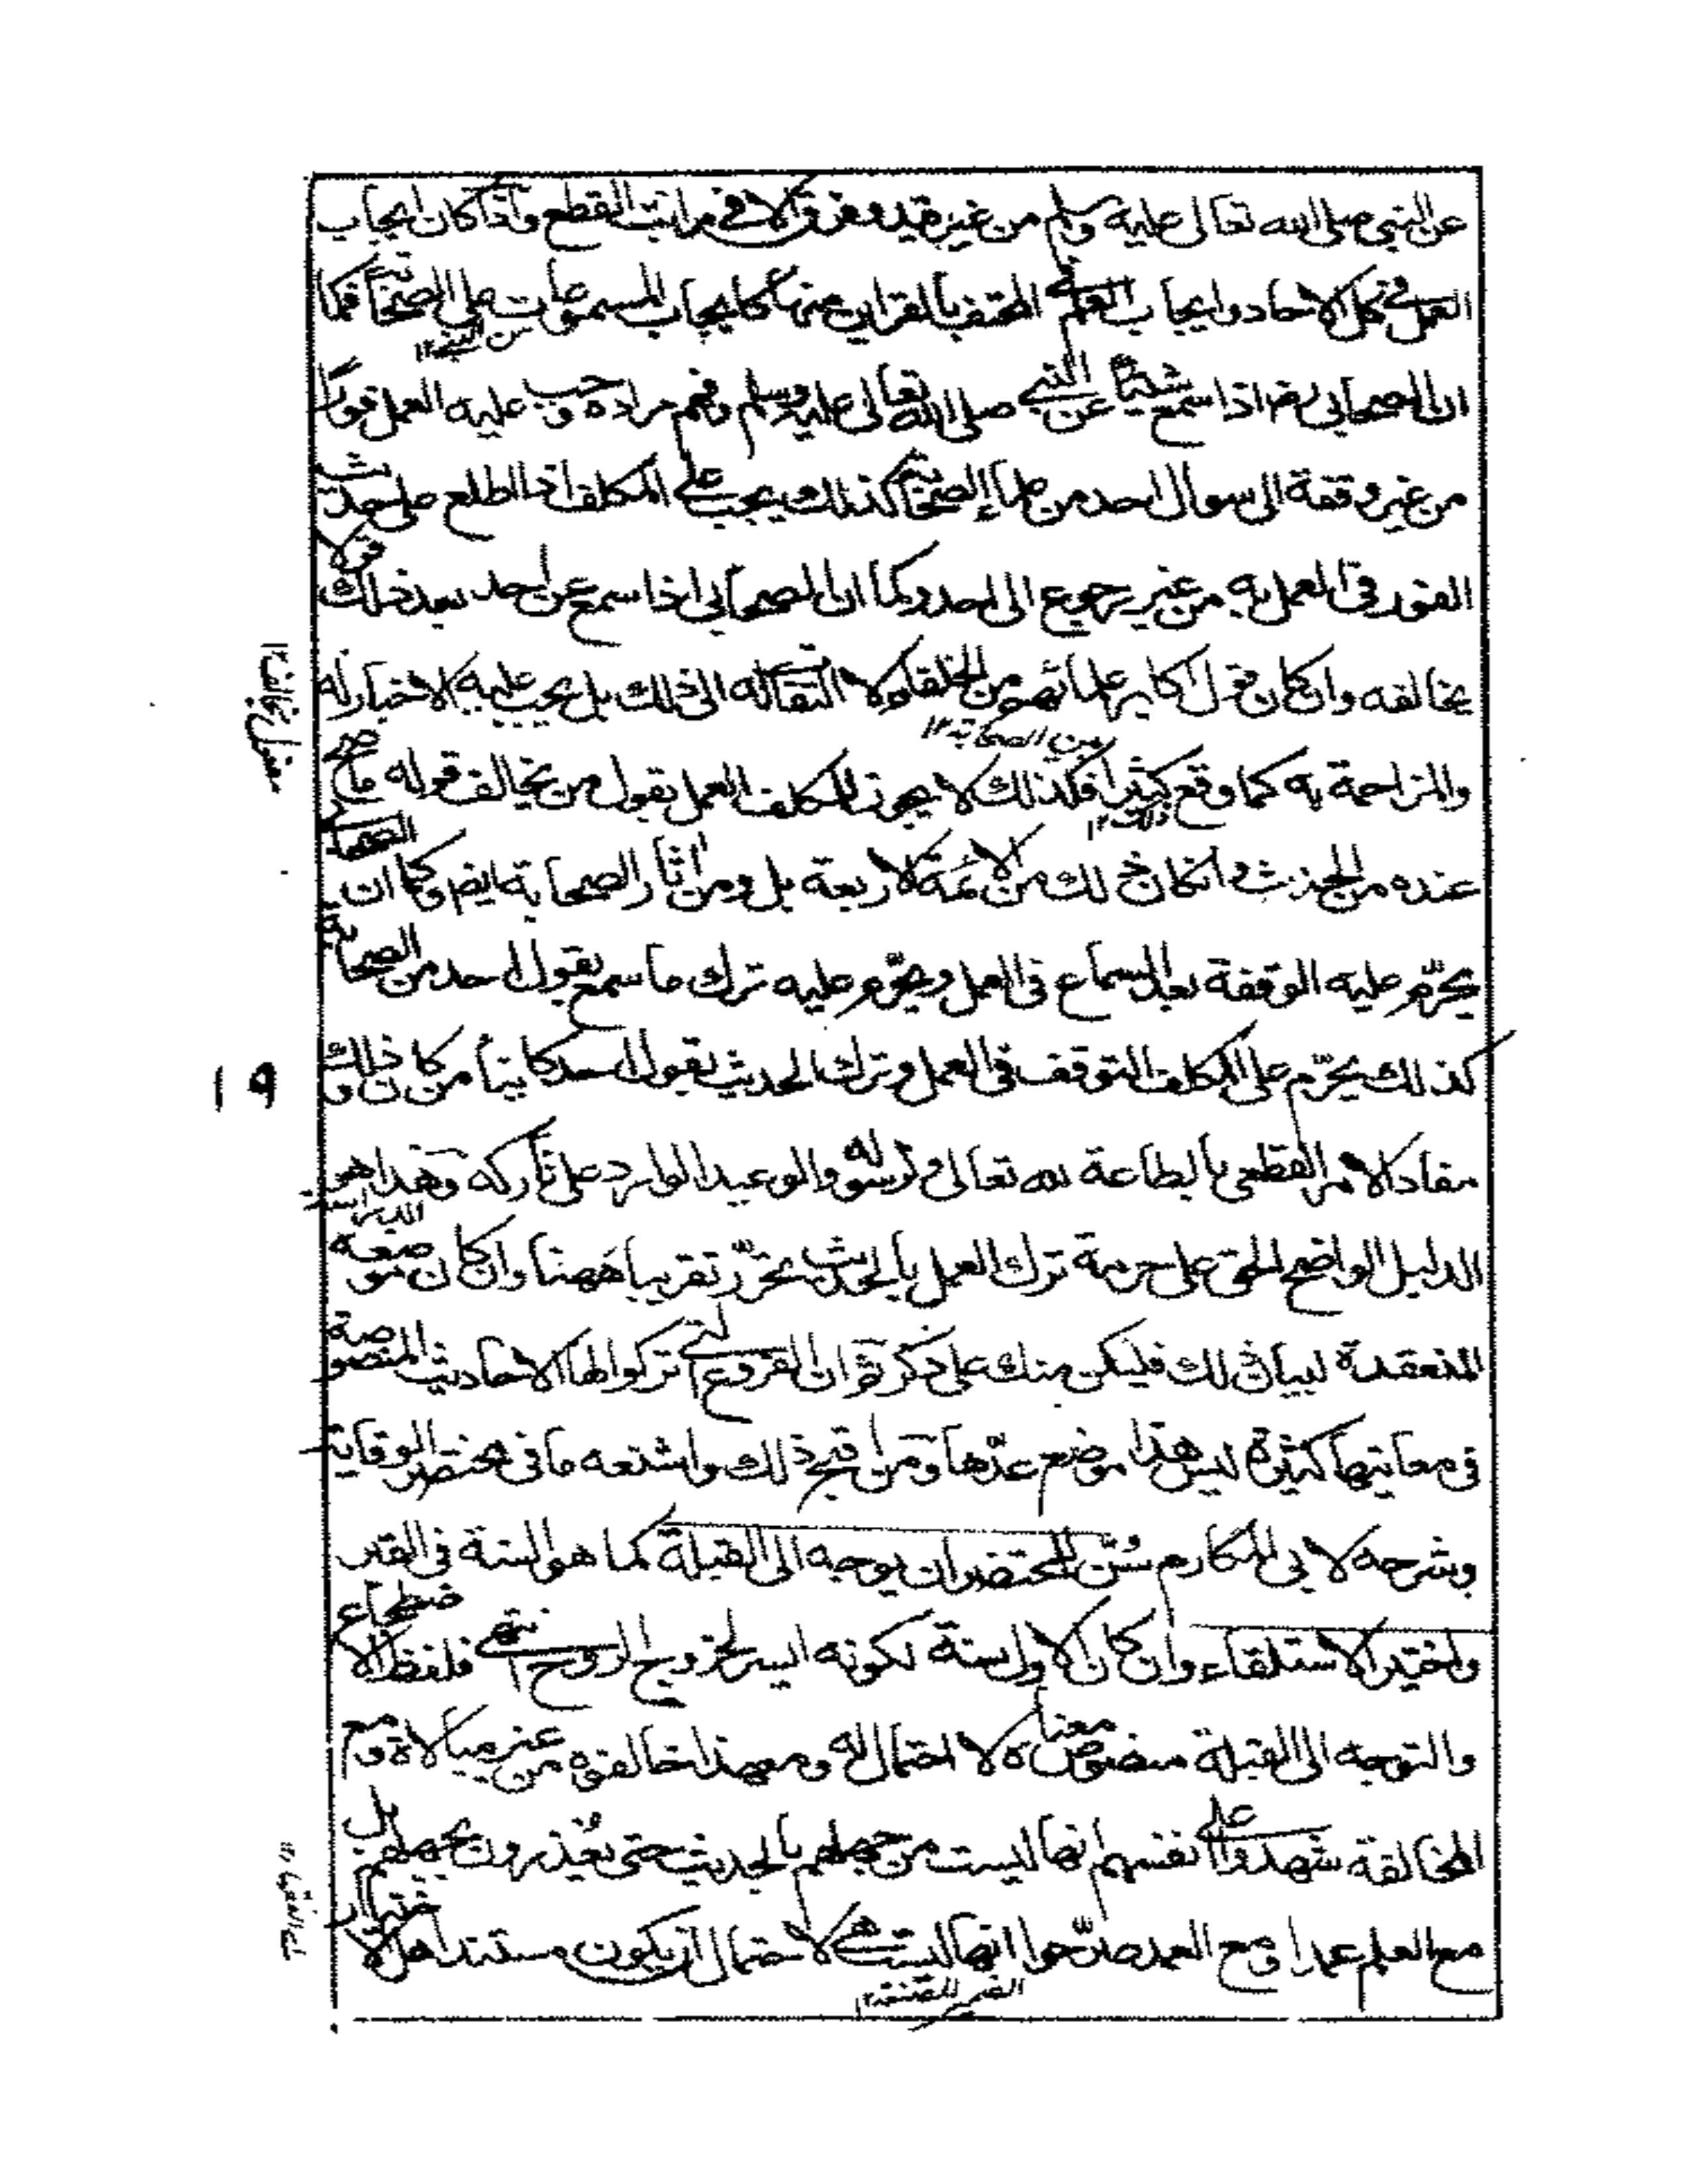 عن النبي صلى الله تعالى عليه وسلم من غير قيد وفرق الا في مراتب القطع واذا كان ايجاب
العمل في كل الاحاد وايجاب العلم في المحتف بالقراين منها كايجاب المسموعات على الصحابة فكما
من النبي ١٢
ان الصحابي رض اذا سمع شيئا عن النبي صلى الله تعالى عليه وسلم وفهم مراده وجب عليه العمل فورا
من غير وقفة الى سوال احد من علماء الصحابة كذلك يجب على المكلف اذا اطلع على حديث
الفور في العمل به من غير رجوع الى احد وكما ان الصحابي اذا سمع عن احد بعد ذلك قولا
يخالفه وان كان من اكابر علمائهم من الخلفاء لا التفات له الى ذلك بل يجب عليه الاخبار له
من الصحابة ١٢
والمزاحمة به كما وقع كثيرا فكذلك لا يجوز للمكلف العمل بقول من يخالف قوله ما صح
عنده من الحديث وان كان ذلك من الائمة الاربعة بل ومن اثار الصحابة ايض وكما ان الصحابي
يحرم عليه الوقفة بعد السماع في العمل ويحرم عليه ترك ما سمع بقول احد من الصحابة
كذلك يحرم على المكلف التوقف في العمل وترك الحديث بقول احد كاينا من كان وذلك
١٩
مفاد الامر القطعي بالطاعة لله تعالى ولرسوله والوعيد الوارد على تاركه وهذا هو
الدليل الواضح الحق على حرمة ترك العمل بالحديث تحرر تقريبا ههنا وان كان موضعه
المنعقدة لبيان ذلك فليكن منك على ذكر ثم ان الفروع التي تركوا لها الاحاديث المنصوصة
في معانيها كثيرة ليس هذا موضع عدها ومن اقبح ذلك واشنعه ما في مختصر الوقاية
وشرحه لابي المكارم سن للمحتضر ان يوجه الى القبلة كما هو السنة في القبر
واختير الاستلقاء وان كان الاول سنة لكونه ايسر لخروج الروح انتهى فلفظ الاضطجاع
والتوجه الى القبلة منصوص معناه لا احتمال له ومع هذا خالفوه من غير مبالاة ومع
المخالفة شهدوا على انفسهم انها ليست من جهلهم بالحديث حتى يعذرون بجهلهم بل
مع العلم عمدا ومع العمد صرحوا انها ليست هي لاحتمال ان يكون مستند اهل الاختيار